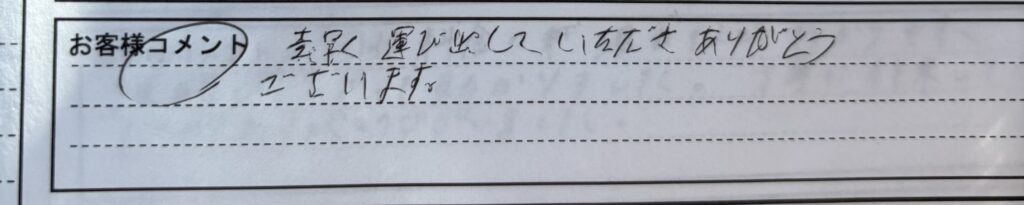 お客様コメント 素早く運び出していただき ありがとう
ございます。